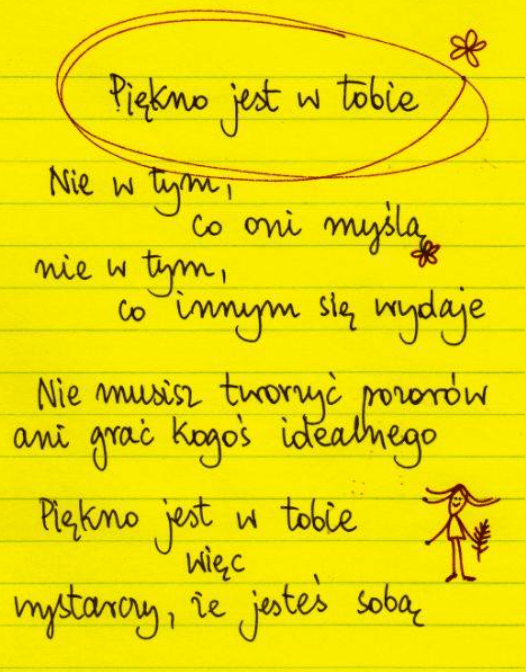 Piękno jest w tobie
Nie w tym,
co oni myślą
nie w tym,
co innym się wydaje
Nie musisz tworzyć pozorów
ani grać kogoś idealnego
Piękno jest w tobie
więc
wystarczy, że jesteś sobą